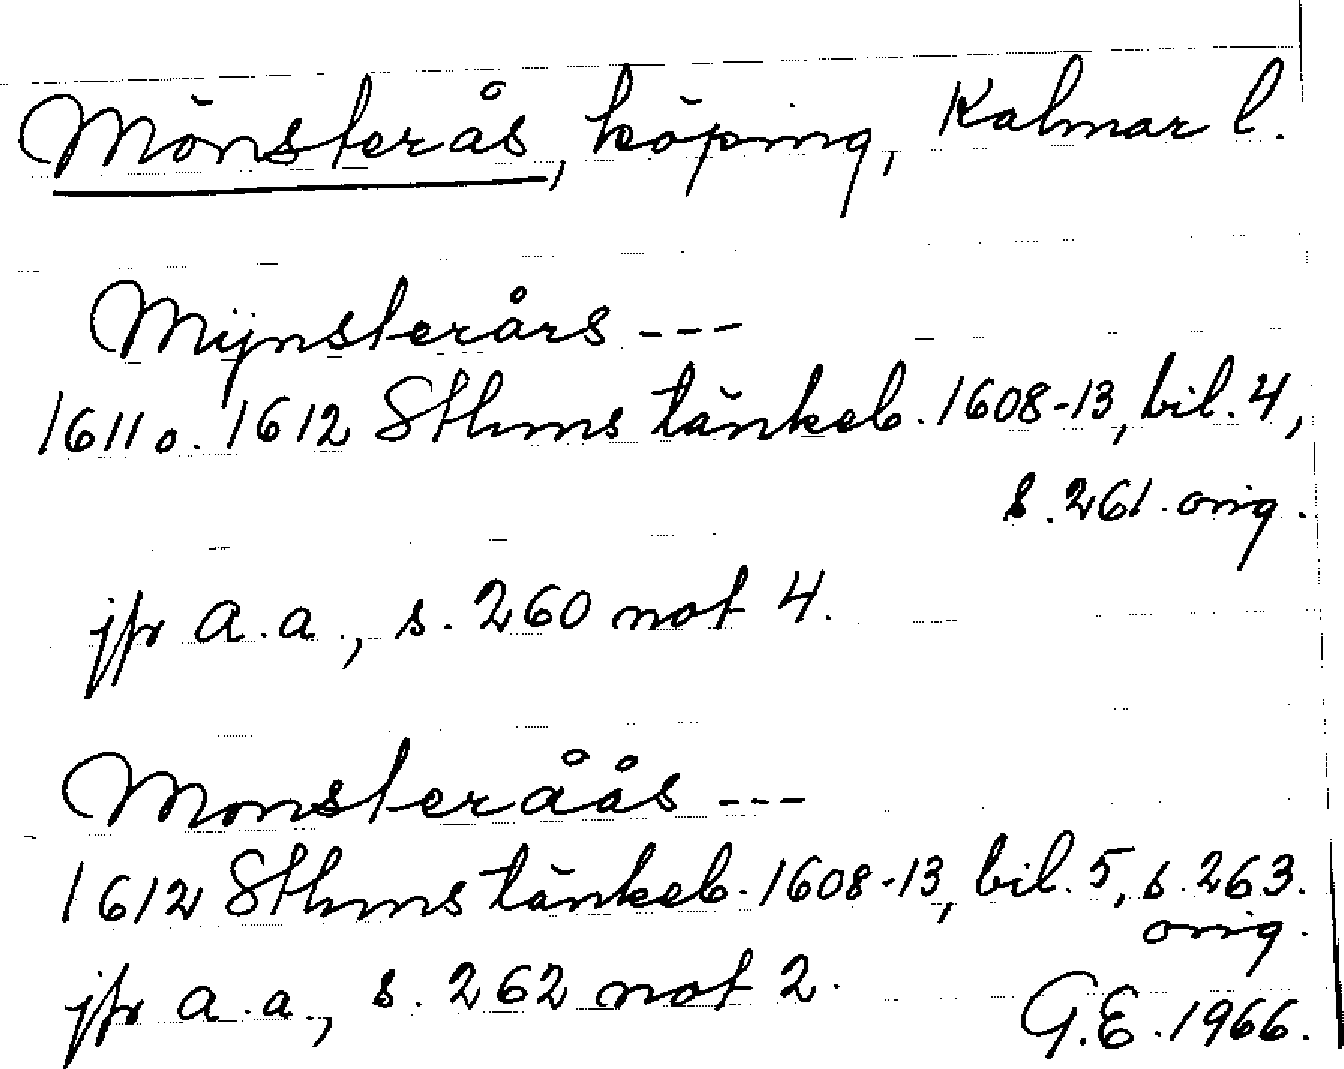 Mönsterås, köping, Kalmar l.
Mÿnsterårs ---
1611 o. 1612 Sthms tänkeb. 1608-13, bil. 4,
s. 261. orig.
jfr a.a., s. 260 not 4.
Monsteråås ---
1612 Sthms tänkeb. 1608-13, bil. 5, s. 263.
orig.
jfr a.a., s. 262 not 2.
G.E. 1966.